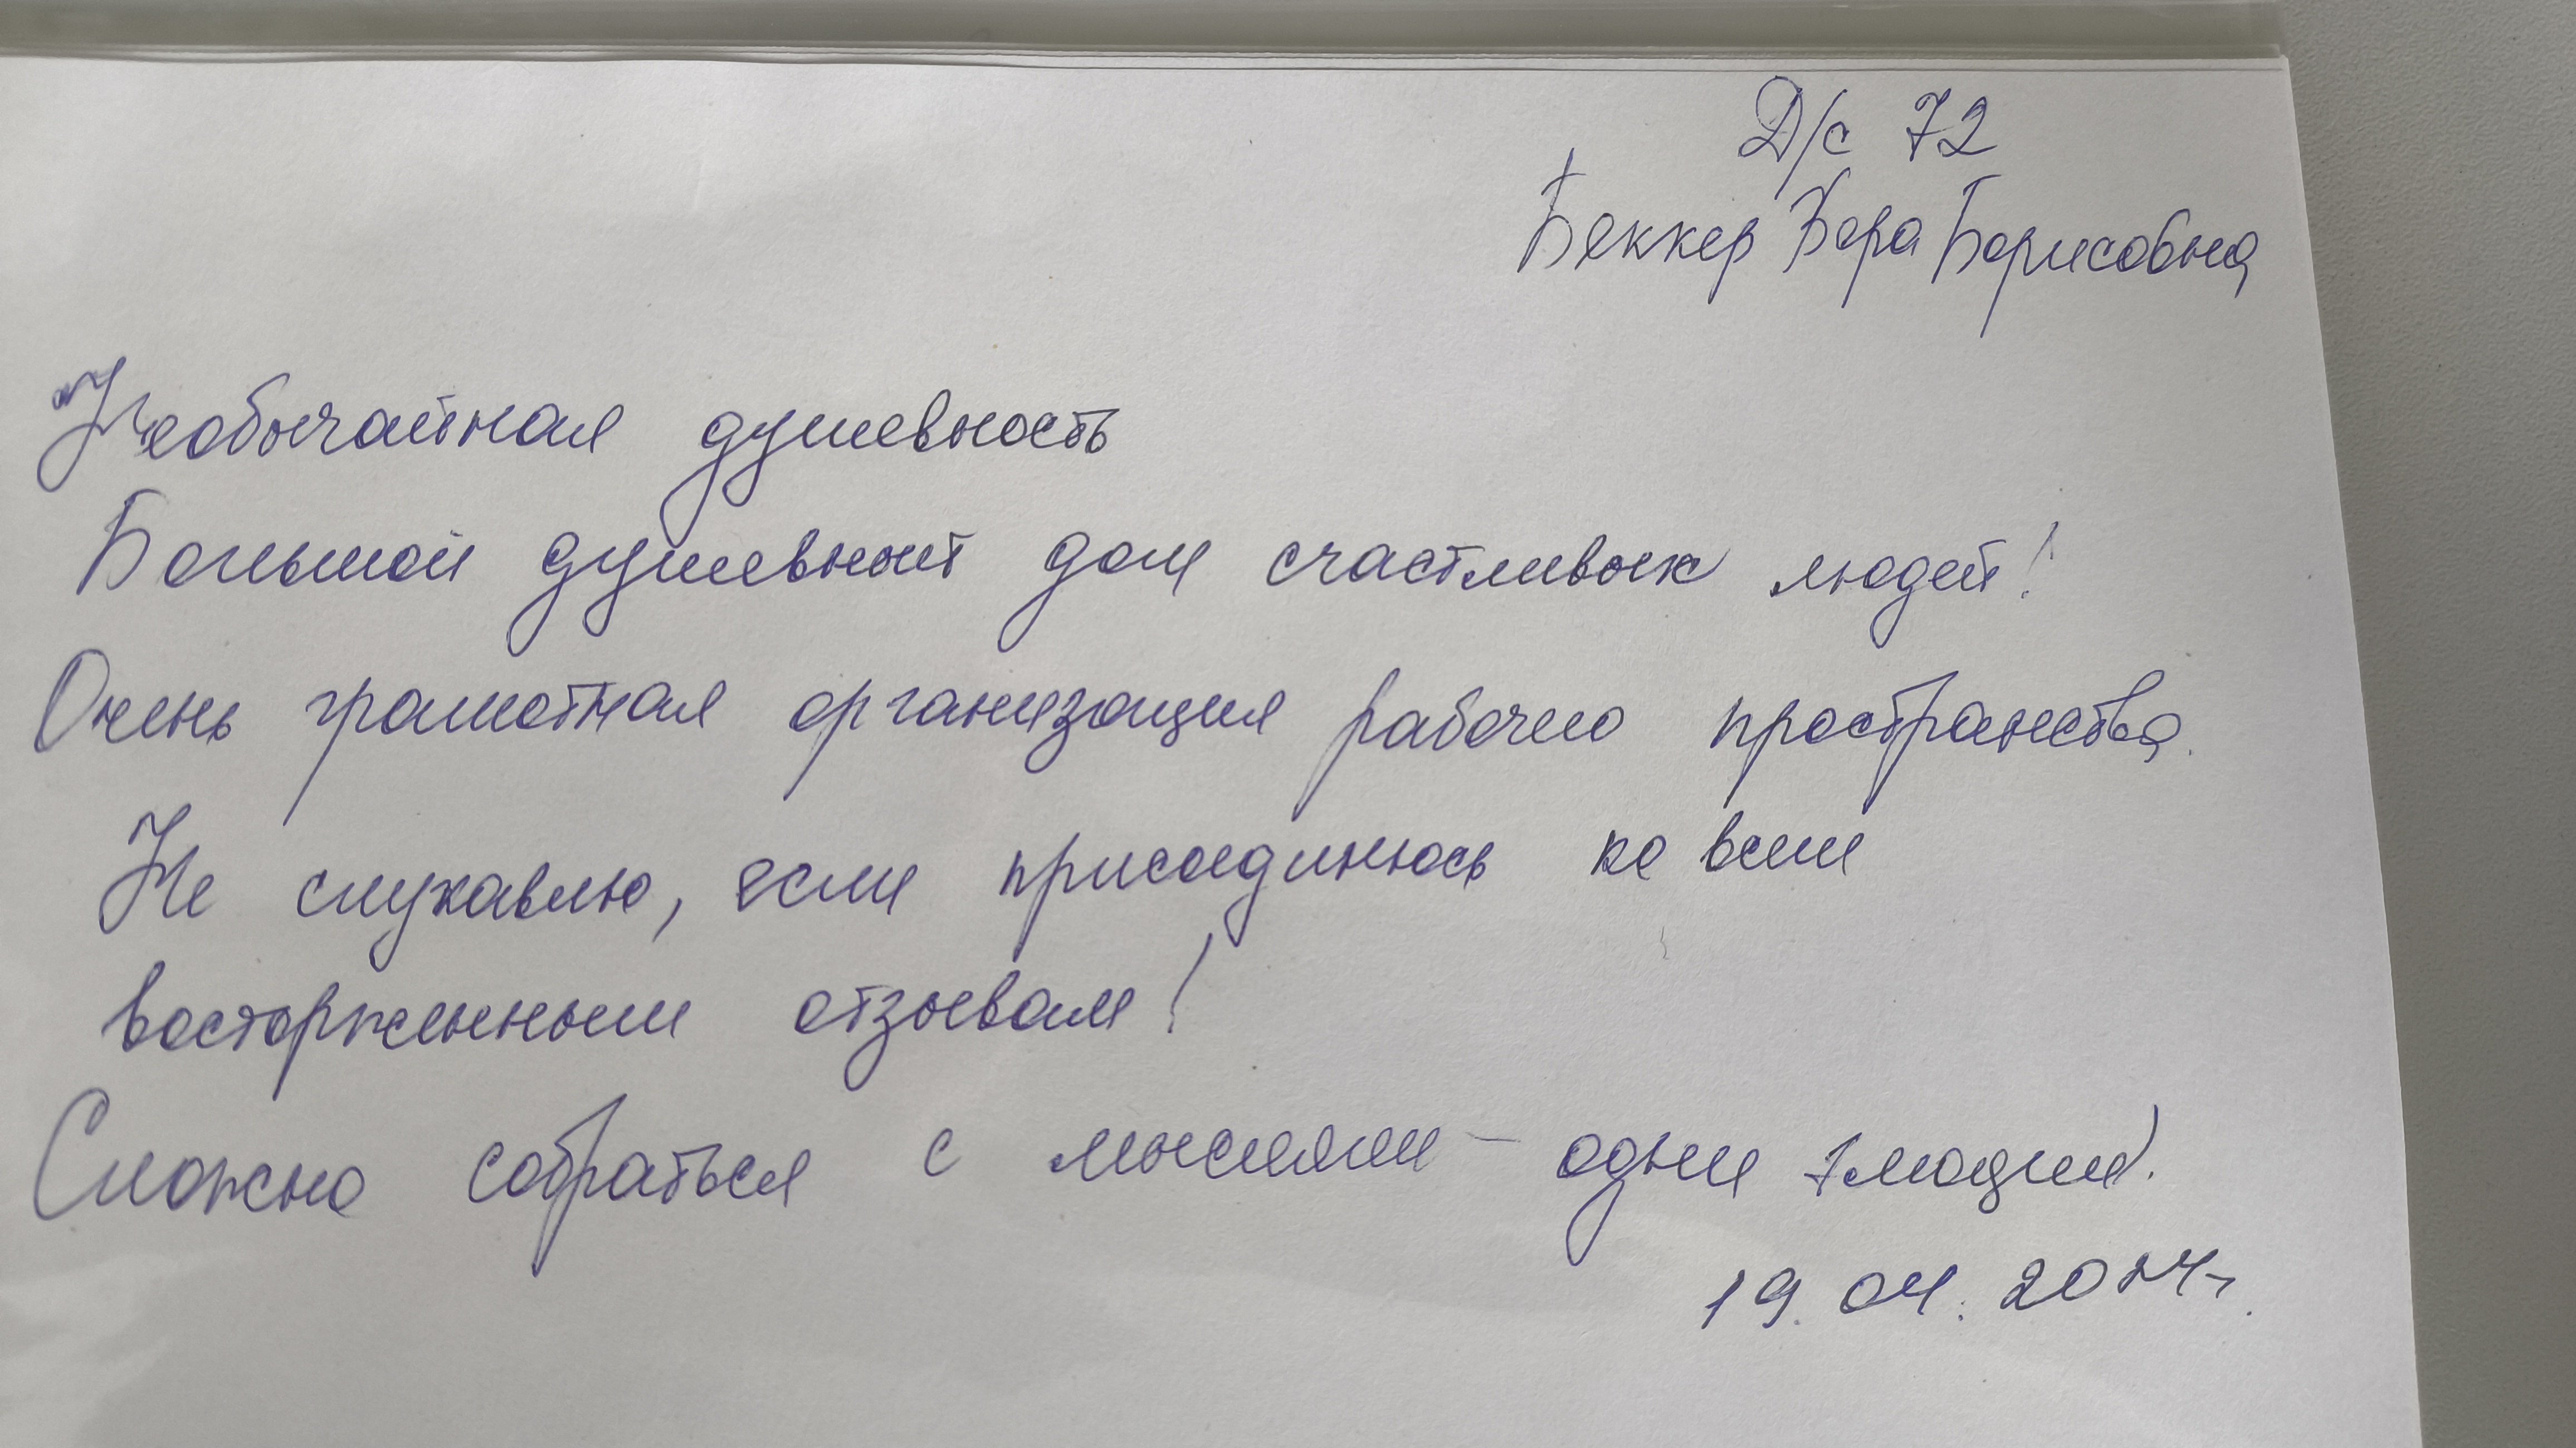 Д/с 72
Беккер Вера Борисовна
Необычайная душевность
Большой душевный дом счастливых людей!
Очень грамотная организация рабочего пространства.
Не слукавлю, если присоединюсь ко всем
восторженным отзывам!
Сложно собраться с мыслями – одни эмоции.
19.04.2024г.